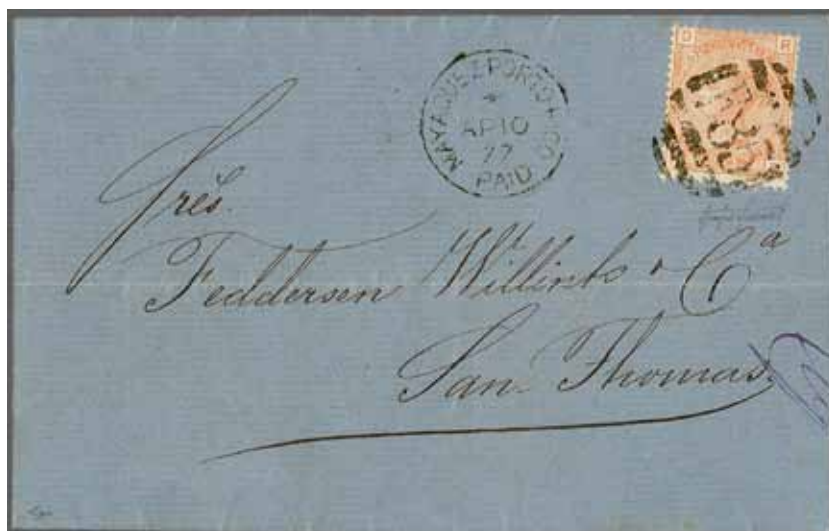 MAYAGUEZ PORTO RICO
AP 10
77
PAID
D R
F 85
Sres.
Feddersen Willink & Cª
San Thomas.